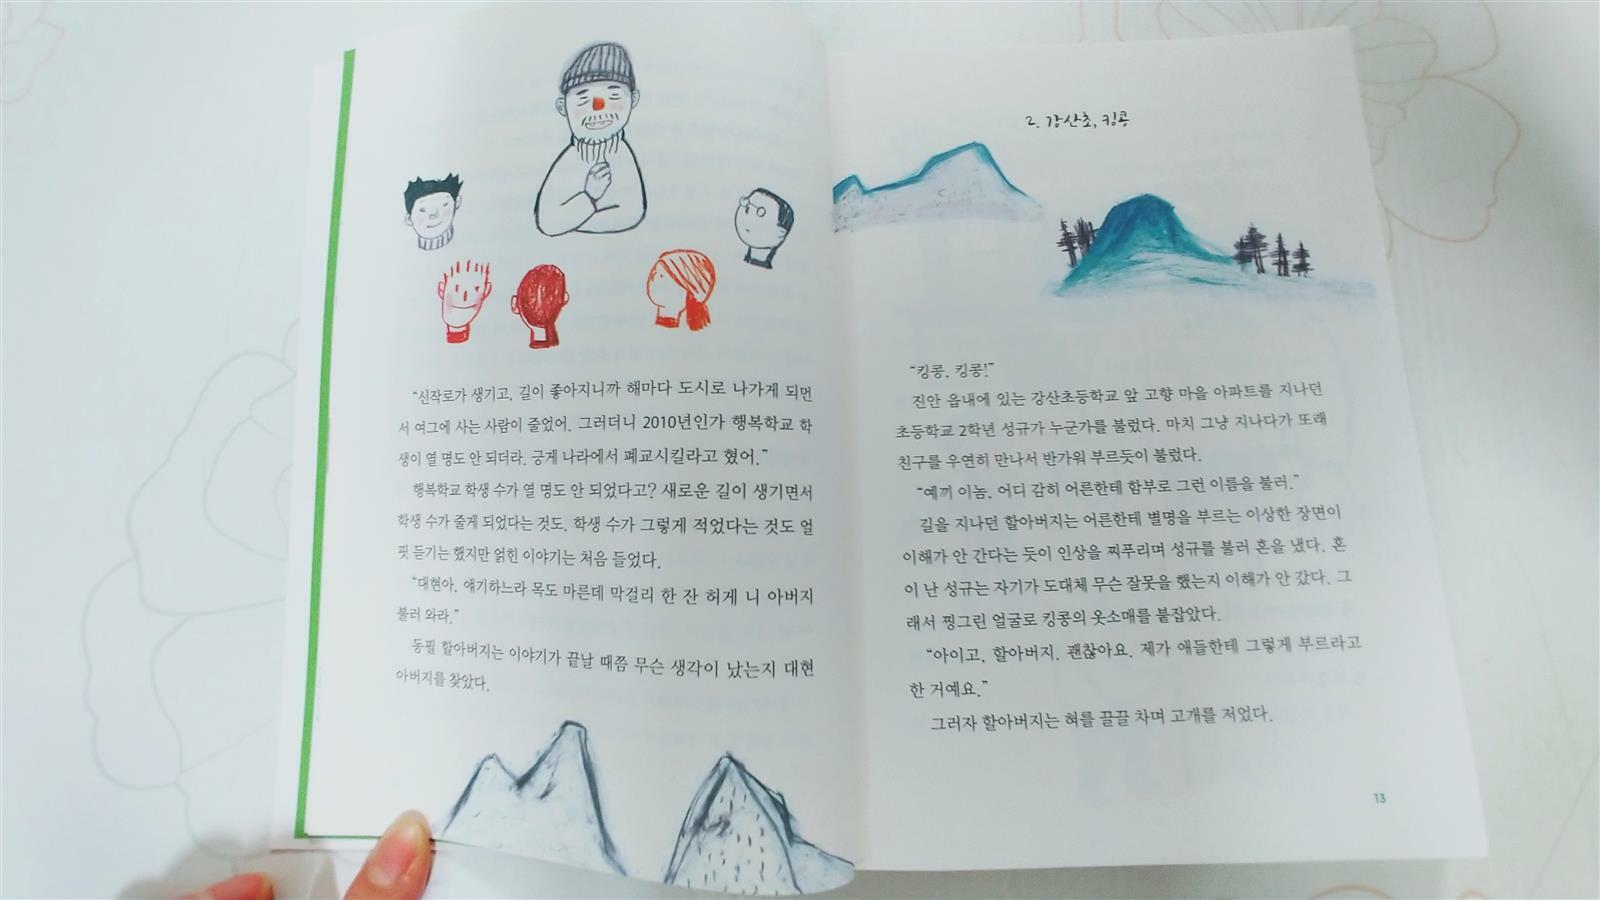 “신작로가 생기고, 길이 좋아지니까 해마다 도시로 나가게 되먼
서 여그에 사는 사람이 줄었어. 그러더니 2010년인가 행복학교 학
생이 열 명도 안 되더라. 긍게 나라에서 폐교시킬라고 혔어.”
행복학교 학생 수가 열 명도 안 되었다고? 새로운 길이 생기면서
학생 수가 줄게 되었다는 것도, 학생 수가 그렇게 적었다는 것도 얼
핏 듣기는 했지만 얽힌 이야기는 처음 들었다.
“대현아, 얘기하느라 목도 마른데 막걸리 한 잔 허게 니 아버지
불러 와라.”
동필 할아버지는 이야기가 끝날 때쯤 무슨 생각이 났는지 대현
아버지를 찾았다.
2. 강산초, 킹콩
“킹콩, 킹콩!”
진안 읍내에 있는 강산초등학교 앞 고향 마을 아파트를 지나던
초등학교 2학년 성규가 누군가를 불렀다. 마치 그냥 지나다가 또래
친구를 우연히 만나서 반가워 부르듯이 불렀다.
“예끼 이놈, 어디 감히 어른한테 함부로 그런 이름을 불러.”
길을 지나던 할아버지는 어른한테 별명을 부르는 이상한 장면이
이해가 안 간다는 듯이 인상을 찌푸리며 성규를 불러 혼을 냈다. 혼
이 난 성규는 자기가 도대체 무슨 잘못을 했는지 이해가 안 갔다. 그
래서 찡그린 얼굴로 킹콩의 옷소매를 붙잡았다.
“아이고, 할아버지. 괜찮아요. 제가 애들한테 그렇게 부르라고
한 거예요.”
그러자 할아버지는 혀를 끌끌 차며 고개를 저었다.
13